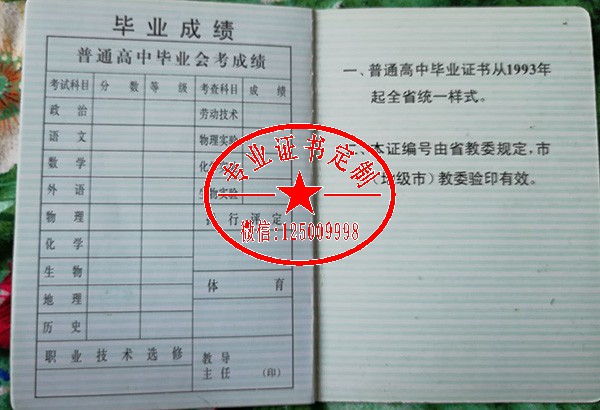 毕业成绩
普通高中毕业会考成绩
考试科目 分 数 等 级 考查科目 成 绩
政 治 劳动技术
语 文 物理实验
数 学
外 语
物 理 行 评 定
化 学
生 物 体 育
地 理
历 史
职 业 技 术 选 修 教 导
主 任 (印)
一、普通高中毕业证书从1993年
起全省统一样式。
本证编号由省教委规定,市
(地级市)教委验印有效。
专业证书定制
微信:125009998